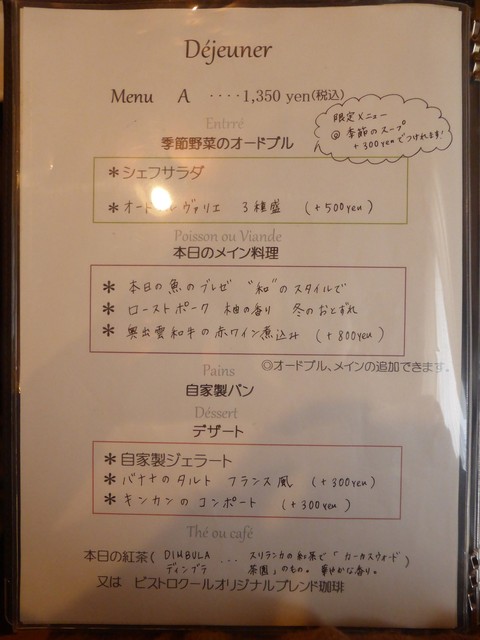 Déjeuner
Menu A ････1,350 yen(税込)
限定メニュー
@ 季節のスープ
+300yenでつけれます!
Entrré
季節野菜のオードブル
＊シェフサラダ
＊オードブルヴァリエ 3種盛 (+500yen)
Poisson ou Viande
本日のメイン料理
＊ 本日の魚のブレゼ "和"のスタイルで
＊ ローストポーク 柚の香り 冬のおとずれ
＊ 奥出雲和牛の赤ワイン煮込み (+800yen)
◎オードブル、メインの追加できます。
Pains
自家製パン
Déssert
デザート
＊自家製ジェラート
＊バナナのタルト フランス風 (+300yen)
＊キンカンのコンポート (+300yen)
Thé ou café
本日の紅茶( DIMBULA ... スリランカの紅茶で「カーカスウォード
ディンブラ 茶園」のもの。華やかな香り。)
又は ビストロクールオリジナルブレンド珈琲